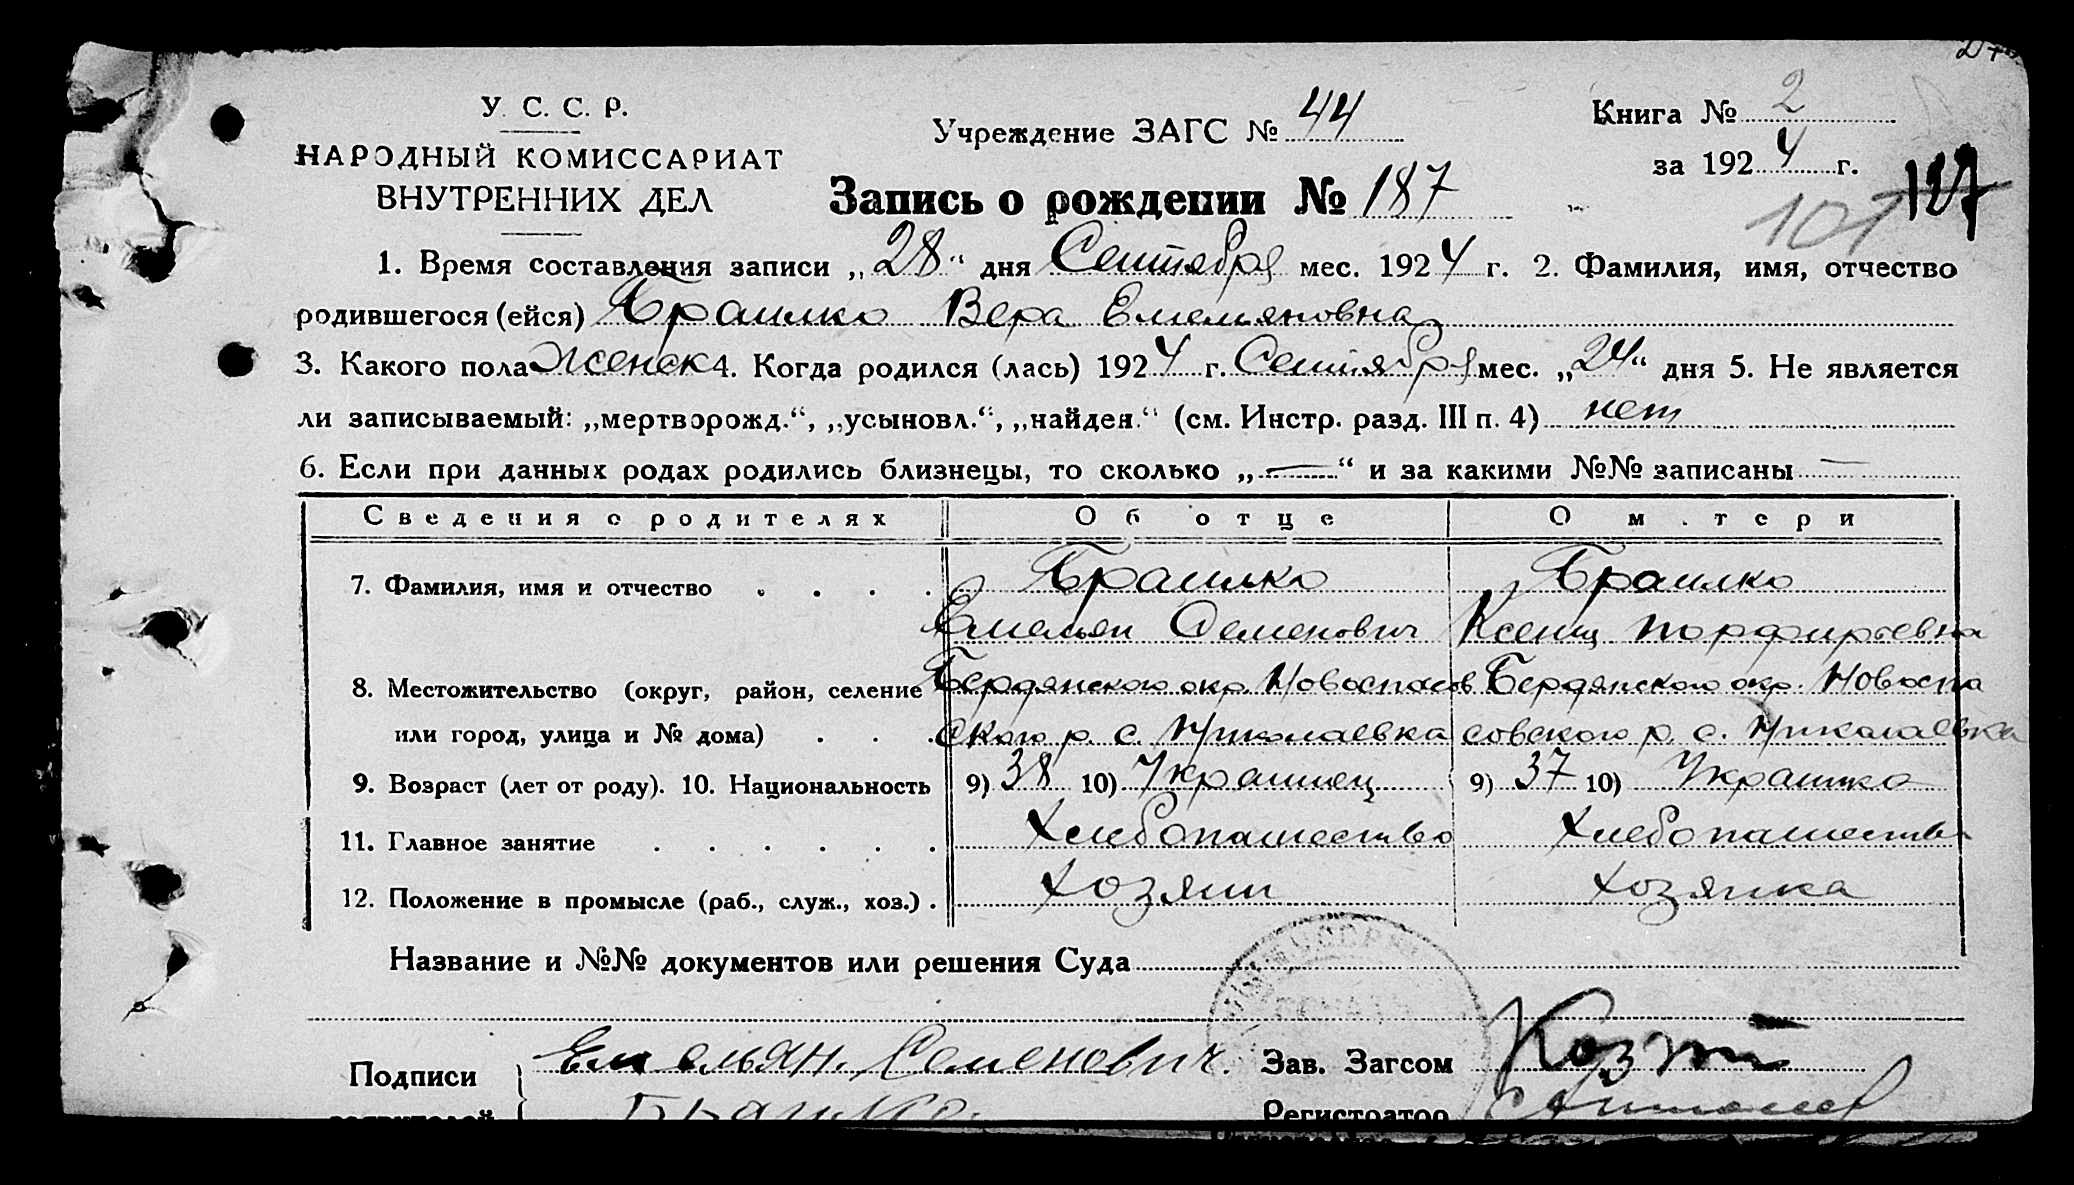 У. С. С. Р.
НАРОДНЫЙ КОМИССАРИАТ
ВНУТРЕННИХ ДЕЛ
Учреждение ЗАГС № 44
Книга № 2
за 1924 г.
Запись о рождении № 187
187
107
1. Время составления записи „28“ дня Сентября мес. 1924 г. 2. Фамилия, имя, отчество
родившегося (ейся) Брашко Вера Емельяновна
3. Какого пола женск 4. Когда родился (лась) 1924 г. Сентября мес. „24“ дня 5. Не является
ли записываемый: „мертворожд.“, „усыновл.“, „найден.“ (см. Инстр. разд. III п. 4) нет
6. Если при данных родах родились близнецы, то сколько „—“ и за какими №№ записаны —
Сведения о родителях Об отце О м.тери
7. Фамилия, имя и отчество . . . . Брашко Брашко
Емельян Семенович Ксения Порфирьевна
8. Местожительство (округ, район, селение Бердянского окр. Новоспасов Бердянского окр. Новоспа
или город, улица и № дома) . . . ского р. с. Николаевка совского р. с. Николаевка
9. Возраст (лет от роду). 10. Национальность 9) 38 10) Украинец 9) 37 10) Украинка
11. Главное занятие . . . . . . Хлебопашество Хлебопашество
12. Положение в промысле (раб., служ., хоз.) . Хозяин Хозяйка
Название и №№ документов или решения Суда
Подписи Емельян. Семенович. Зав. Загсом
заявителей Брашко. Регистратор